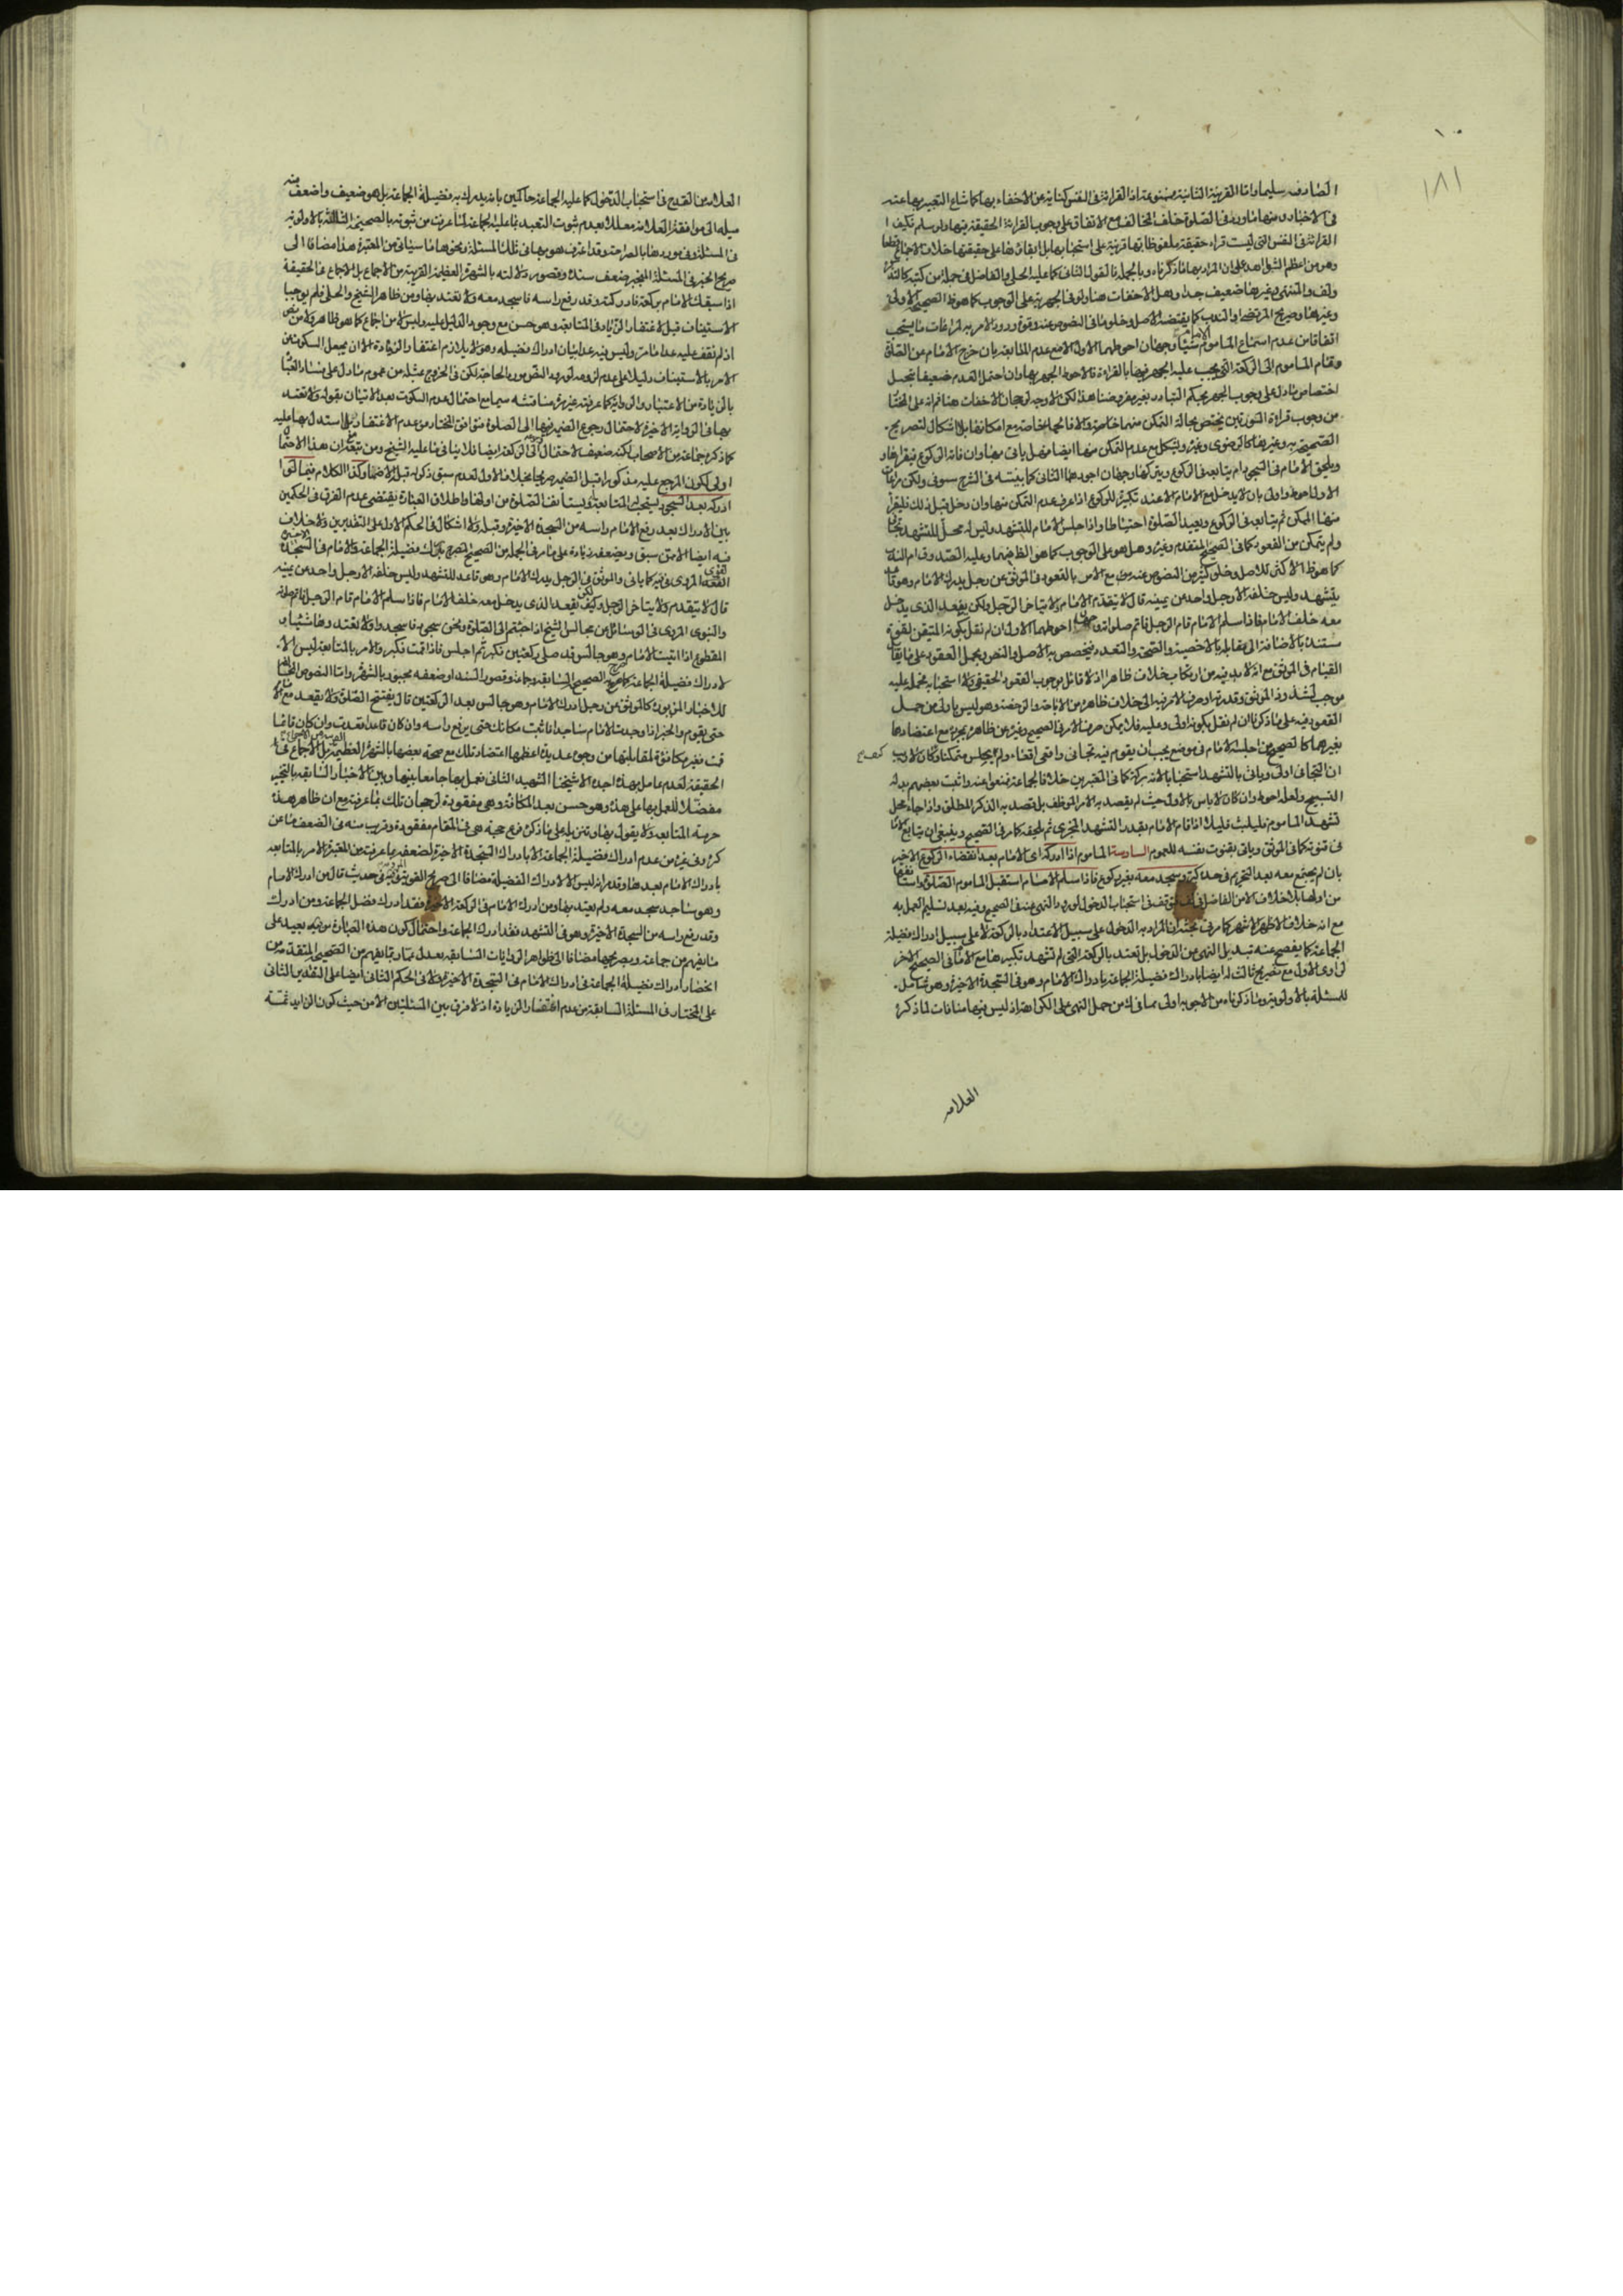 ١٠
١٨١
الصادف سليما واما القرينة الثانية فممنوعة اذ القرائة في النفس كناية عن الاخفاء بها كما شاع التعبير بها عنه
في الاخبار ومنها ما ورد في الصلوة خلف المخالف مع الاتفاق على وجوب القرائة الحقيقة فيها ولو سلم فكيف
القرائة في النفس التي ليست قراءة حقيقة ملفوظا بها قرينة على استحبابها بل ابقائها على حقيقتها خلاف الاجماع قطعا
وهو من اعظم الشواهد على ان المراد بها ما ذكرناه وبالجملة فالقول الثاني كما عليه الحلي والفاضل في جملة من كتبه كالتذكرة
والمنتهى وغيرها ضعيف جدا وهل الاخفات هنا ولو في الجهرية على الوجوب كما هو ظ الصحيحة الاولى
وغيرها وصريح المرتضى او الندب كما يقتضيه الاصل وخلو باقي النصوص عنه وقوة ورود الامر به لمراعات ما يستحب
اتفاقا من عدم اسماع الماموم الامام شيئا وجهان احوطهما الاول الا مع عدم المتابعة بان خرج الامام عن الصلوة
وقام الماموم الى الركعة التي يجب عليه الجهر فيها بالقراءة فالاحوط الجهر بها وان احتمل العدم ضعيفا بتخيل
اختصاص ما دل على وجوب الجهر بحكم التبادر بغير مفروضنا هذا لكن الاوجه لرجحان الاخفات هنا ثم انه على المختار
من وجوب قراءة السورتين يختص بحالة التمكن منهما خاصة والا فالحمد خاصة مع امكانها بلا اشكال لتصريح
الصحيحة به وغيرها كالرضوي وغيره ويشكل مع عدم التمكن منها ايضا فهل ياتي بها وان فاته الركوع فيقراها و
ويلحق الامام في السجود ام يتابعه في الركوع ويتركها وجهان اجودهما الثاني كما بينته في الشرح مستوفى ولكن مراعات
الاول احوط واولى بان لا يدخل مع الامام الا عند تكبيره للركوع اذا عرف عدم التمكن منها وان دخل قبل ذلك فليقرأ
منها الممكن ثم يتابعه في الركوع ويعيد الصلوة احتياطا واذا جلس الامام للتشهد وليس له محل للتشهد تجافى
ولم يتمكن من القعود كما في الصحيح المتقدم وغيره وهل هو على الوجوب كما هو الظ منهما وعليه الصدوق ام الندب
كما هو ظ الاكثر للاصل وخلو كثير من النصوص عنه مع الامر بالقعود في الموثق عن رجل يدرك الامام وهو قاعد
يتشهد وليس خلفه الا رجل واحد عن يمينه قال لا يتقدم الامام ولا يتاخر الرجل ولكن يقعد الذي يدخل
معه خلف الامام فاذا سلم الامام قام الرجل فاتم صلواته وجهان احوطهما الاول ان لم نقل بكونه المتيقن لقوة
سنده بالاضافة الى مقابله بالاخصية والصحة والتعدد فيخصص به الاصل والنص ويحمل القعود على ما يقابل
القيام في الموثق مع انه لا بد فيه من ارتكاب خلاف ظاهر اذ لا قائل بوجوب القعود الحقيقي ولا استحبابه فحمله عليه
موجب لشذوذ الموثق
القعود فيه على ما ذكرنا ان لم نقل بكونه اولى وعليه فلا يمكن صرف الامر في الصحيح وغيره عن ظاهره بمجرده مع اعتضادهما
بغيرهما كالصحيح من اجلسه الامام في موضع يجب ان يقوم فيه تجافى واقعى اقعاء ولم يجلس متمكنا وكان الاقرب
ان التجافي اولى وياتي بالتشهد استحبابا لانه بركة كما في المعتبرين خلافا لجماعة فمنعوا عنه واثبت بعضهم بدله
التسبيح ولعله احوط وان كان لا باس بالاول حيث لم يقصد به الامر الموظف بل قصد به الذكر المطلق واذا جاء محل
تشهد الماموم فليلبث قليلا اذا قام الامام بقدر التشهد المجزي ثم يلحقه كما مر في الصحيح وينبغي ان يتابع الامام
في قنوته كما في الموثق وياتي بقنوت نفسه للعموم السادسة الماموم اذا ادركه اي الامام بعد انقضاء الركوع الاخير
بان لم يجتمع معه بعد التحريم في حد كبر وسجد معه بغير ركوع فاذا سلم الامام استقبل الماموم الصلوة واستانفها
من اولها بلا خلاف الا من الفاضل في توقف في استحباب الدخول لورود النهي عنه في الصحيح وفيه بعد تسليم العمل به
مع انه خلاف الاظهر الاشهر كما مر في بحثه ان المراد به الدخول على سبيل الاعتداد بالركعة لا على سبيل ادراك فضيلة
الجماعة كما يفصح عنه تبديل النهي عن الدخول بلا تعتد بالركعة التي لم تشهد تكبيرها مع الامام في الصحيح الاخر
لراوي الاول مع تصريح ثالث له ايضا بادراك فضيلة الجماعة بادراك الامام وهو في السجدة الاخيرة وهو شامل
للمسئلة بالاولوية وما ذكرناه من الاجوبة اولى مما في ك من حمل النهي على الكراهة اذ ليس فيها منافات لما ذكره
العلامه
العلامة من القدح في استحباب الدخول كما عليه الجماعة حاكمين بانه يدرك به فضيلة الجماعة بل هو ضعيف واضعف منه
ميله الى موافقة العلامة معللا بعدم ثبوت التعبد بما عليه الجماعة لما عرفت من ثبوته بالصحيحة الثالثة بالاولوية
في المسئلة وفي موردها بالصراحة وقد اعترف هو بها في تلك المسئلة ونحوها ما سياتي من المعتبرة هذا مضافا الى
صريح الخبر في المسئلة المنجبر ضعف سنده وقصور دلالته بالشهرة العظيمة القريبة من الاجماع بل الاجماع في الحقيقة
اذا سبقك الامام بركعة فادركته وقد رفع راسه فاسجد معه ولا تعتد بها ومن ظاهر الشيخ والحلي فلم يوجبا
الاستيناف قبل لاغتفار الزيادة في المتابعة وهو حسن مع وجود الدليل عليه وليس لا من اجماع كما هو ظاهر ولا من نص
اذ لم نقف عليه عدا ما مر وليس فيه عدا بيان ادراك فضيلة وهو لا يلازم اغتفار الزيادة الا ان يجعل السكوت عن
الامر بالاستيناف دليلا على عدم لزومه لورود النصوص به في الحاجة لكن في الخروج بمثله من عموم ما دل على فساد العبادة
بالزيادة من الاعتبار والرواية كما عرفته غير مرة مناقشة سيما مع احتمال عدم السكوت بعد الاتيان بقوله ولا تعتد
بها في الرواية الاخيرة لاحتمال رجوع الضمير فيها الى الصلوة فتوافق المختار من عدم الاغتفار بل استدل بها عليه
كما ذكره جماعة من الاصحاب لكنه ضعيف لاحتمال الرجوع الى الركعة ايضا فلا ينافي ما عليه الشيخ ومن تبعه مع ان هذا الاحتمال
اولى لكون المرجع عليه مذكورا قبل الضمير صريحا بخلاف الاول لعدم سبق ذكره قبل الاضمار وكذا الكلام فيما لو
ادركه بعد السجود فيستحب المتابعة ويستانف الصلوة من اولها واطلاق العبارة يقتضي عدم الفرق في الحكمين
بين الادراك بعد رفع الامام راسه من السجدة الاخيرة وقبله ولا اشكال في الحكم الاول على التقديرين ولا خلاف
فيه ايضا الا ممن سبق ويضعفه زيادة على ما مر في الجملة من الصحيح المصرح بادراك فضيلة الجماعة والامام في السجدة الاخيرة
قال لا يتقدم ولا يتاخر الرجل ولكن يقعد الذي يدخل معه خلف الامام فاذا سلم الامام قام الرجل فاتم صلوته
والنبوي المروي في الوسائل عن مجالس الشيخ اذا جئتم الى الصلوة ونحن سجود فاسجدوا ولا تعتدوها شيئا و
المقطوع اذا اتيت الامام وهو جالس قد صلى ركعتين فكبر ثم اجلس فاذا قمت فكبر والامر بالمتابعة ليس الا
لادراك فضيلة الجماعة كما صرح به الصحيح السابقة وجماعة وقصور السند او ضعفه مجبور بالشهرة واما النصوص المخالفة
للاخبار المزبورة كالموثق عن رجل ادرك الامام وهو جالس بعد الركعتين قال يفتتح الصلوة ولا يقعد مع الامام
حتى يقوم والخبر اذا وجدت الامام ساجدا فاثبت مكانك حتى يرفع راسه وان كان قاعدا قعدت وان كان قائما
قمت فغير مكافئة لمقابلتها من وجوه عديدة اعظمها اعتضاد تلك مع صحة بعضها بالشهرة العظيمة بل الاجماع في
الحقيقة لعدم عامل بهذه اجده الا شيخنا الشهيد الثاني فعمل بها جامعا بينها وبين الاخبار السابقة بالتخيير
مفضلا للعمل بها على هذه وهو حسن بعد المكافئة وهي مفقودة لرجحان تلك بما عرفته مع ان ظاهر هذه
حرمة المتابعة ولا يقول بها وتنزيله على ما ذكره فرع حجية هي في المقام مفقودة وقريب منه في الضعف ما عن
كره وفي غيره من عدم ادراك فضيلة الجماعة الا بادراك السجدة الاخيرة لضعفه بما عرفت من المعتبرة الامر بالمتابعة
بادراك الامام بعدها وقد مر انه ليس الا لادراك الفضيلة مضافا الى صريح القوي في حديث قال من ادرك الامام
وهو ساجد سجد معه ولم يعتد بها ومن ادرك الامام في الركعة الاخيرة فقد ادرك فضل الجماعة ومن ادركه
وقد رفع راسه من السجدة الاخيرة وهو في التشهد فقد ادرك الجماعة واحتمال كون هذا العبارة من يه بعيد على
ما يفهم من جماعة وبصريحها مضافا الى ظواهر الروايات السابقة يعدل عما ربما يفهم من الصحيح المتقدمة من
انحصار ادراك فضيلة الجماعة في ادراك الامام في السجدة الاخيرة ولا في الحكم الثاني ايضا على التقدير الثاني
على المختار في المسئلة السابقة من عدم اغتفار الزيادة اذ لا فرق بين المسئلتين الا من حيث كون الزايد ثمة